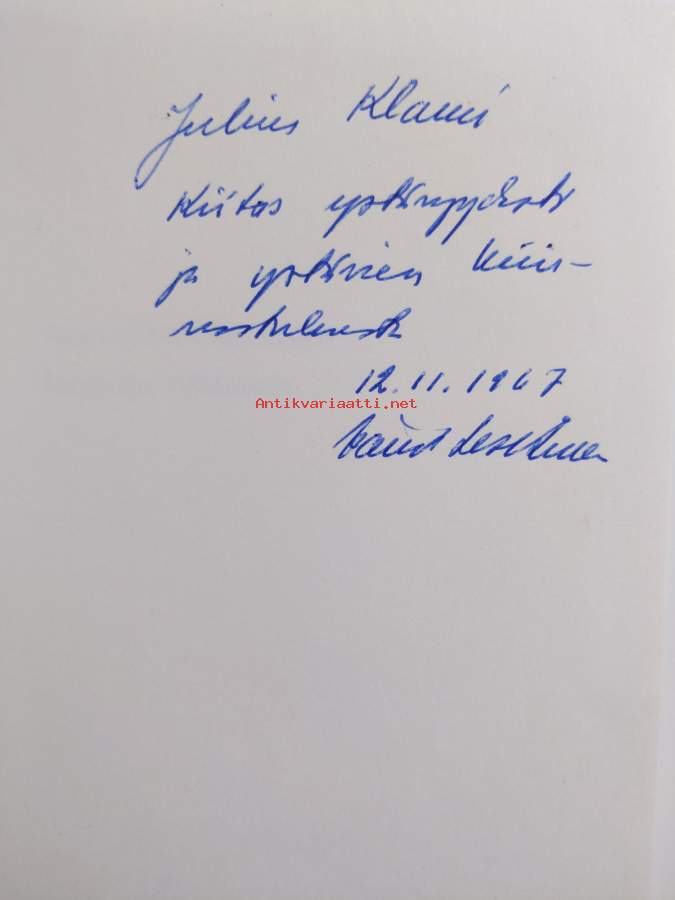 Julius Klami
Kiitos ystävyydestä
ja ystävien kiin-
nostuksesta
12.11.1967
Antikvariaatti.net